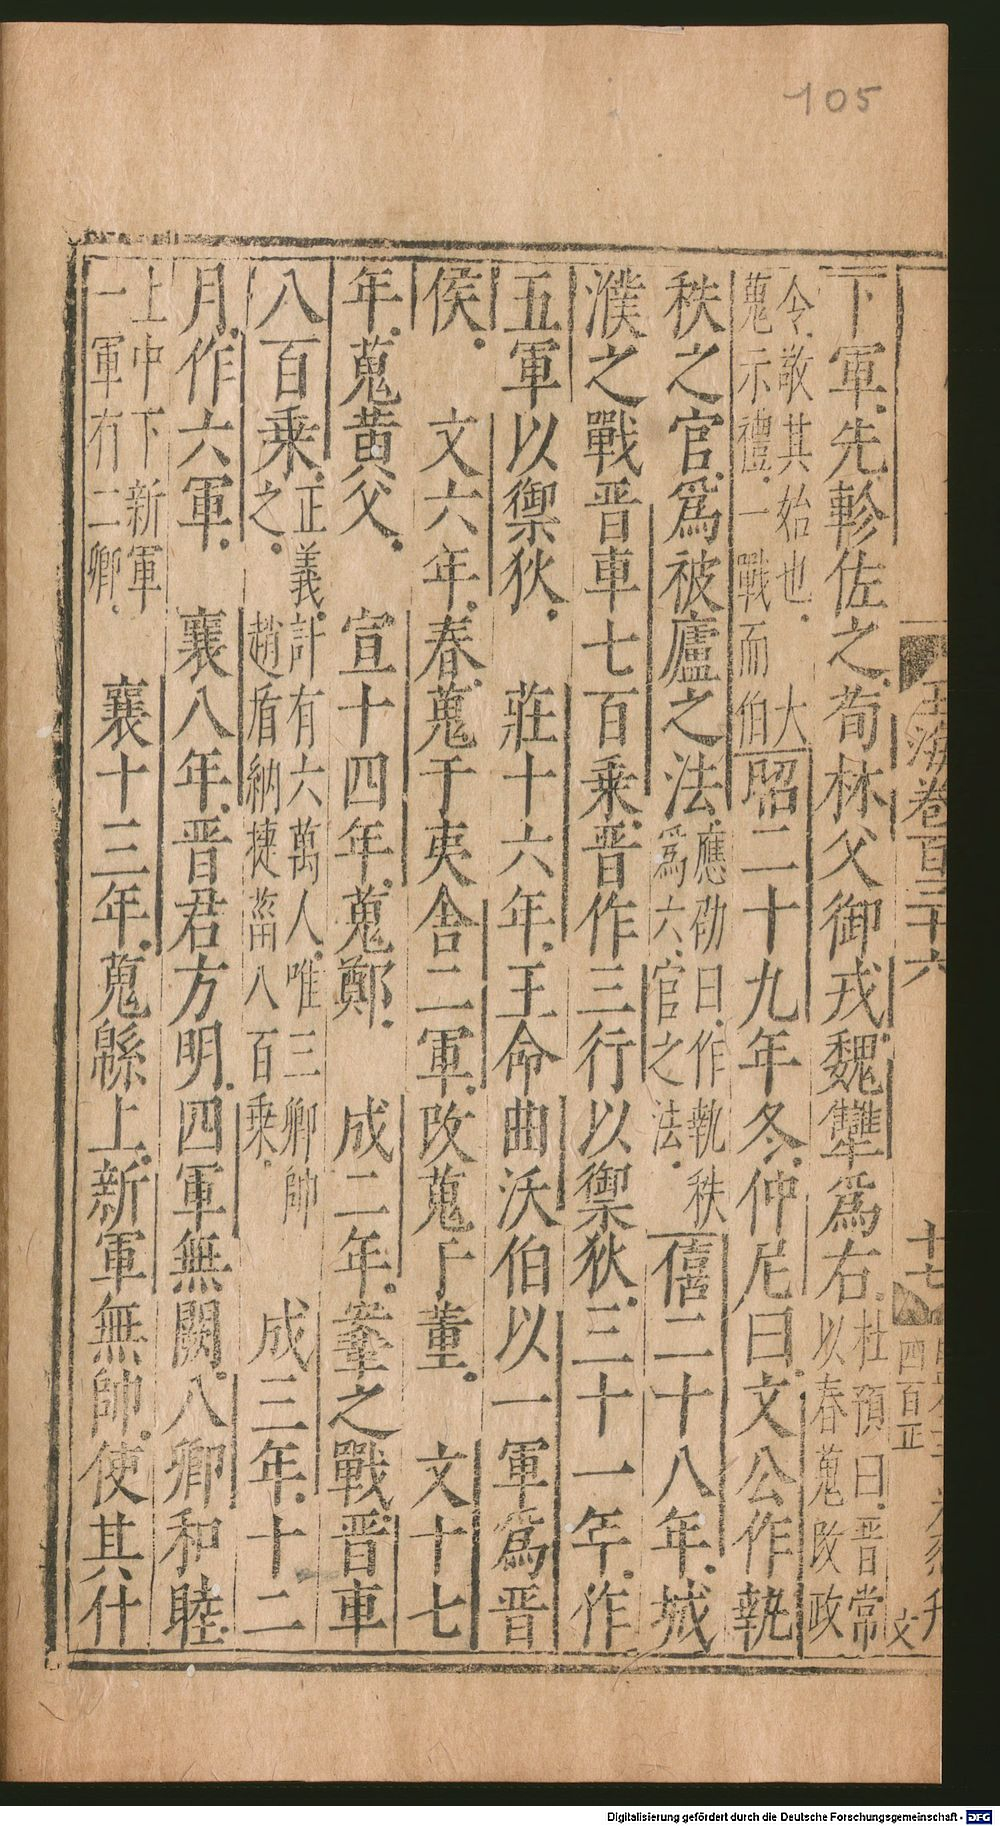 105
玉海卷百三十六
十七
四百正
文
下軍先軫佐之荀林父御戎魏犨爲右杜預曰晋常
以春蒐改政
令敢其始也大
蒐示禮一戰而伯昭二十九年冬仲尼曰文公作執
秩之官爲被廬之法應劭曰作執秩
爲六官之法僖二十八年城
濮之戰晋車七百乗晋作三行以禦狄三十一年作
五軍以禦狄 莊十六年王命曲沃伯以一軍爲晋
侯 文六年春蒐于夷舎二軍改蒐于董 文十七
年蒐黄父 宣十四年蒐鄭 成二年鞌之戰晋車
八百乗正義計有六萬人唯三卿帥
之趙盾納捷菑八百乗 成三年十二
月作六軍 襄八年晋君方明四軍無闕八卿和睦
上中下新軍
一軍有二卿 襄十三年蒐緜上新軍無帥使其什
Digitalisierung gefördert durch die Deutsche Forschungsgemeinschaft - DFG